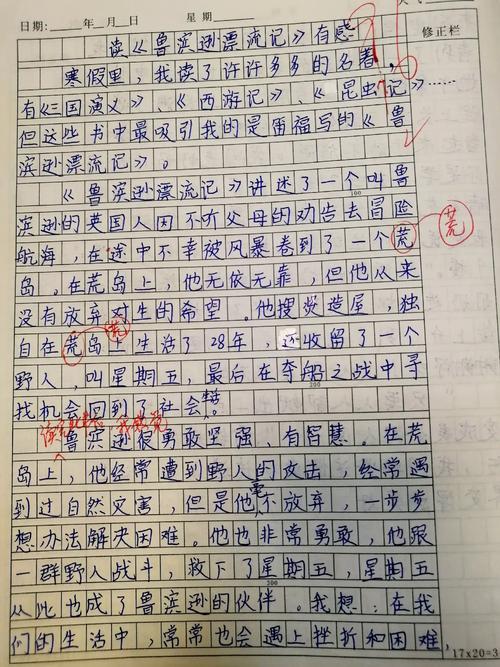 日期：___年_月_日 星期___ 天气
读《鲁滨逊漂流记》有感 修正栏
寒假里，我读了许许多多的名著，
有《三国演义》、《西游记》、《昆虫记》……
但这些书中最吸引我的是雷福写的《鲁
滨逊漂流记》。
《鲁滨逊漂流记》讲述了一个叫鲁
100
滨逊的英国人因不听父母的劝告去冒险
航海，在途中不幸被风暴卷到了一个荒 荒
岛。在荒岛上，他无依无靠，但他从来
没有放弃对生的希望。他搜炎造屋，独
荒
自在荒岛上生活了28年，还收留了一个
野人，叫星期五，最后在夺船之战中寻
200
找机会回到了社会
鲁滨逊很勇敢坚强、有智慧。在荒
岛上，他经常遭到野人的攻击，经常遇
到过自然灾害，但是他毫不放弃，一步步
想办法解决困难。他也非常勇敢，他跟
一群野人战斗，救下了星期五，星期五
300
从此也成了鲁滨逊的伙伴。我想：在我
们的生活中，常常也会遇上挫折和困难，
17×20=3